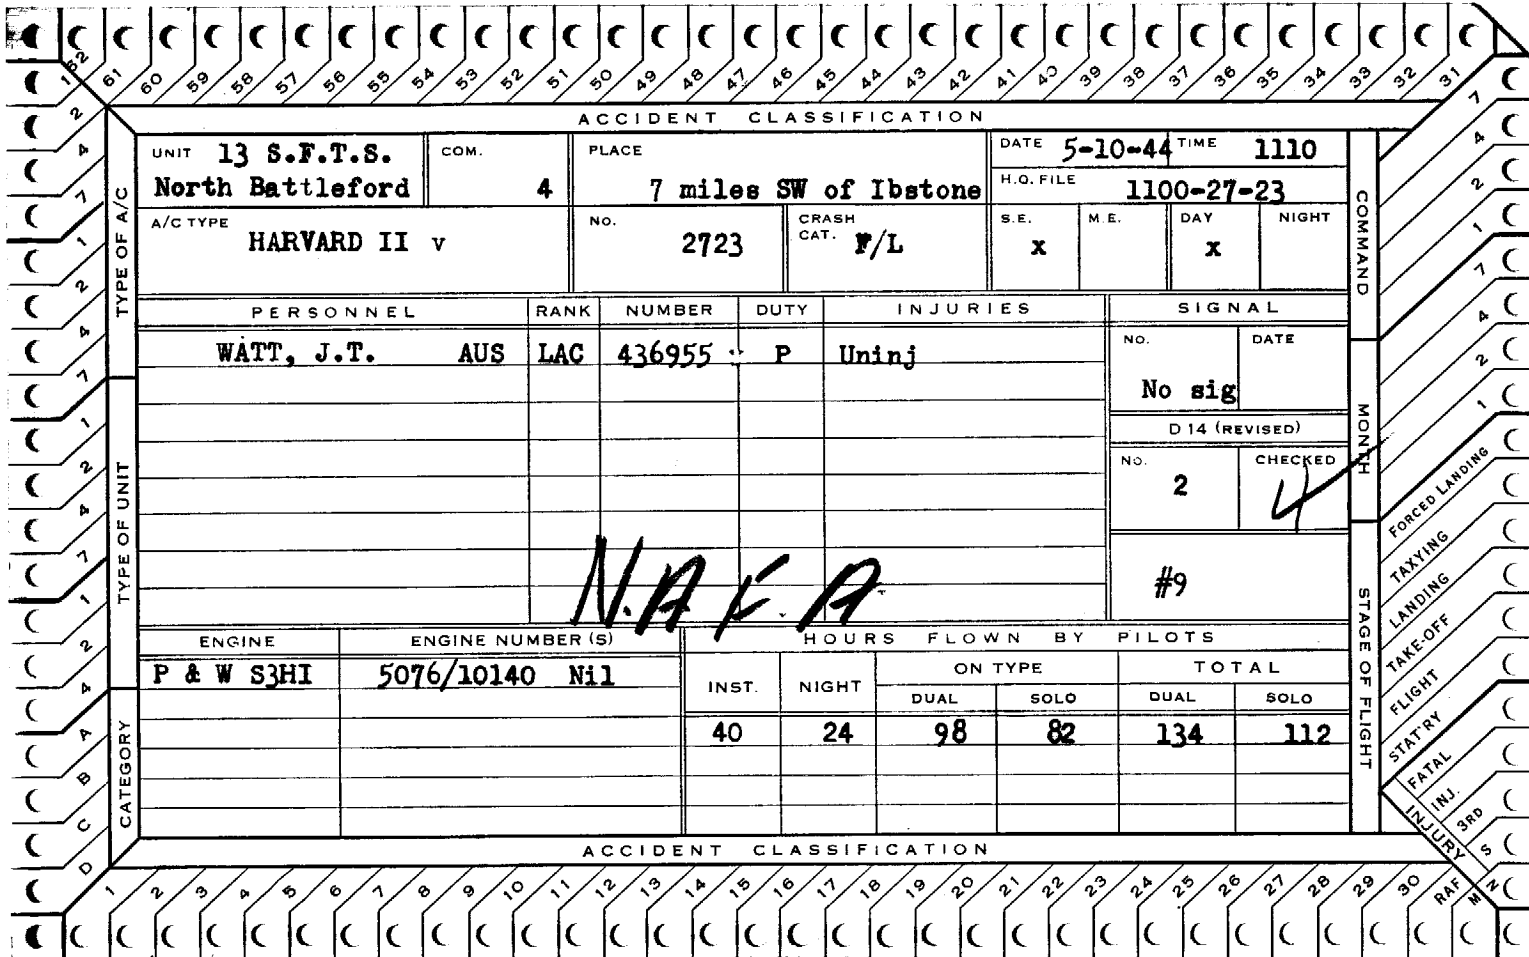 62 61 60 59 58 57 56 55 54 53 52 51 50 49 48 47 46 45 44 43 42 41 40 39 38 37 36 35 34 33 32 31
ACCIDENT CLASSIFICATION
UNIT 13 S.F.T.S.
North Battleford
COM. 4
PLACE
7 miles SW of Ibstone
DATE 5-10-44 TIME 1110
H.Q. FILE 1100-27-23
A/C TYPE HARVARD II v
NO. 2723
CRASH CAT. F/L
S.E. x
M.E.
DAY x
NIGHT
PERSONNEL RANK NUMBER DUTY INJURIES SIGNAL
WATT, J.T. AUS LAC 436955 P Uninj
NO. DATE
No sig
D 14 (REVISED)
NO. 2
CHECKED 4
#9
N.A.F.A
ENGINE ENGINE NUMBER(S) HOURS FLOWN BY PILOTS
P & W S3HI 5076/10140 Nil
INST. NIGHT ON TYPE TOTAL
DUAL SOLO DUAL SOLO
40 24 98 82 134 112
ACCIDENT CLASSIFICATION
1 2 3 4 5 6 7 8 9 10 11 12 13 14 15 16 17 18 19 20 21 22 23 24 25 26 27 28 29 30 RAF M N
TYPE OF A/C
TYPE OF UNIT
CATEGORY
1 2 4 7 1 2 4 7 1 2 4 7 1 2 4 A B C D
COMMAND
MONTH
STAGE OF FLIGHT
7 4 2 1 7 4 2 1
FORCED LANDING
TAXYING
LANDING
TAKE-OFF
FLIGHT
STAT'RY
FATAL
INJ.
3RD
S
INJURY